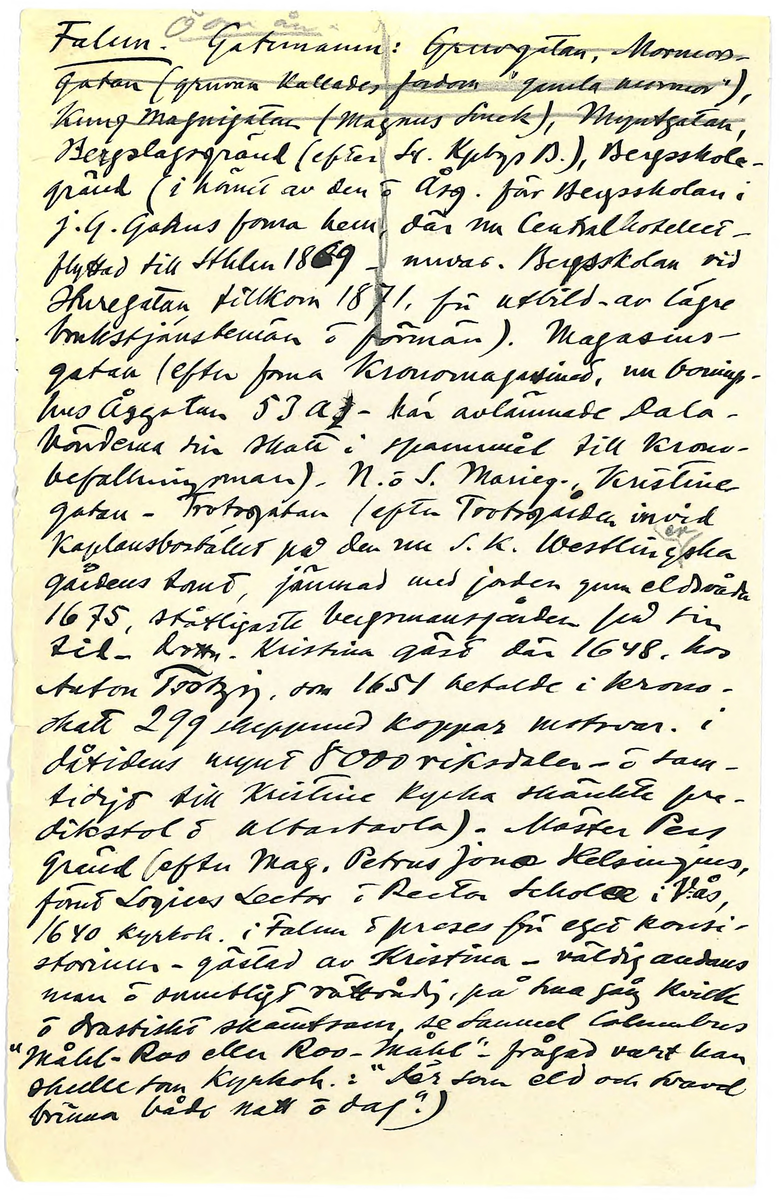 Ö om ån.
Falun. Gatunamn: Gruvgatan, Mormors-
gatan (gruvan kallades fordom "gamla mormor"),
Kung Magnigatan (Magnus Smek), Myntgatan,
Bergslagsgränd (efter St. Kpbgs B.), Bergsskole-
gränd (i hörnet av den ö Åsg. för Bergsskolan i
J. G. Gahns forna hem, där nu Centralhotellet –
flyttad till Sthlm 1869 – invar. Bergsskolan vid
Sturegatan tillkom 1871, för utbild. av lägre
brukstjänstemän ö förmän). Magasins-
gatan (efter forna Kronomagasinet, nu bonings-
hus Åsgatan 53 A – här avlämnade Dala-
bönderna sin skatt i spannmål till krono-
befallningsman). N. ö S. Marieg., Kristine
gatan – Trotzgatan (efter Trotzgården invid
Kaplansbostället på den nu S. K. Westlingska
er
gårdens tomt, jämnad med jorden gnm eldsvåda
1675, ståtligaste bergsmansgården på sin
tid – Drttn. Kristina gäst där 1648, hos
Anton Trotzig, som 1651 betalde i krono-
skatt 299 skeppund koppar motsvar. i
dåtidens mynt 8000 riksdaler – ö sam-
tidigt till Kristine kyrka skänkte pre-
dikstol ö altartavla). Mäster Pers
Gränd (efter Mag. Petrus Jonæ Helsingius,
förut Logices Lector ö Rector Scholæ i V:ås,
1640 kyrkoh. i Falun ö preses för eget konsi-
storium – gästad av Kristina – väldig andans
man ö orubbligt rättrådig, på sina gång kvick
ö drastiskt skämtsam, se Samuel Columbus
"Måhl-Roo eller Roo-Måhl" – frågad vart han
skulle som kyrkoh.: "Där som eld och svavel
brinna både natt ö dag".)